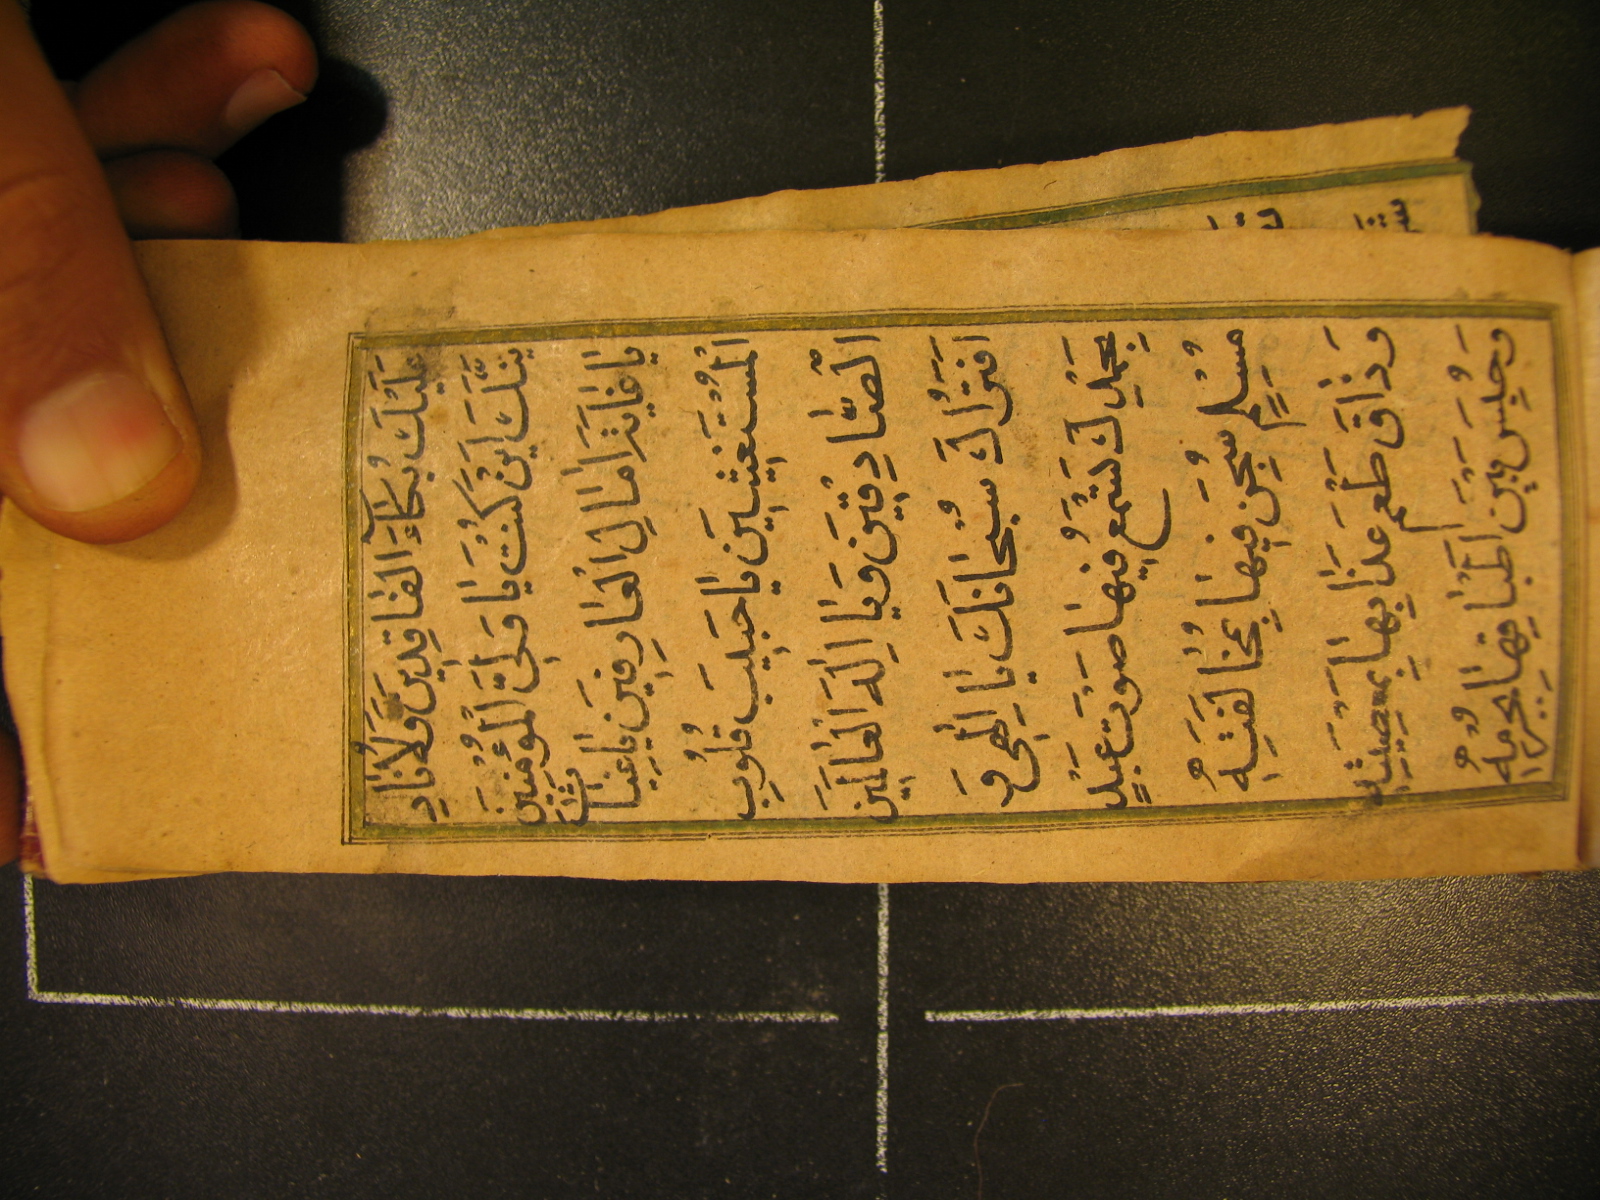 عَلَيْكَ بُكَاءَ الْفَاقِدِينَ وَلَأُنَادِ
يَنَّكَ اَيْنَ كُنْتَ يَا وَلِيَّ الْمُؤْمِنِينَ
يَا غَايَةَ اٰمَالِ الْعَارِفِينَ يَا غِيَاثَ
الْمُسْتَغِيثِينَ يَا حَبِيبَ قُلُوبِ
الصَّادِقِينَ وَيَا اِلٰهَ الْعَالَمِينَ
اَفَتُرَاكَ سُبْحَانَكَ يَا اِلٰهِى وَ
بِحَمْدِكَ تَسْمَعُ فِيهَا صَوْتَ عَبْدٍ
مُسْلِمٍ سُجِنَ فِيهَا بِمُخَالَفَتِهِ
وَذَاقَ طَعْمَ عَذَابِهَا بِمَعْصِيَتِهِ
وَحُبِسَ بَيْنَ اَطْبَاقِهَا بِجُرْمِهِ